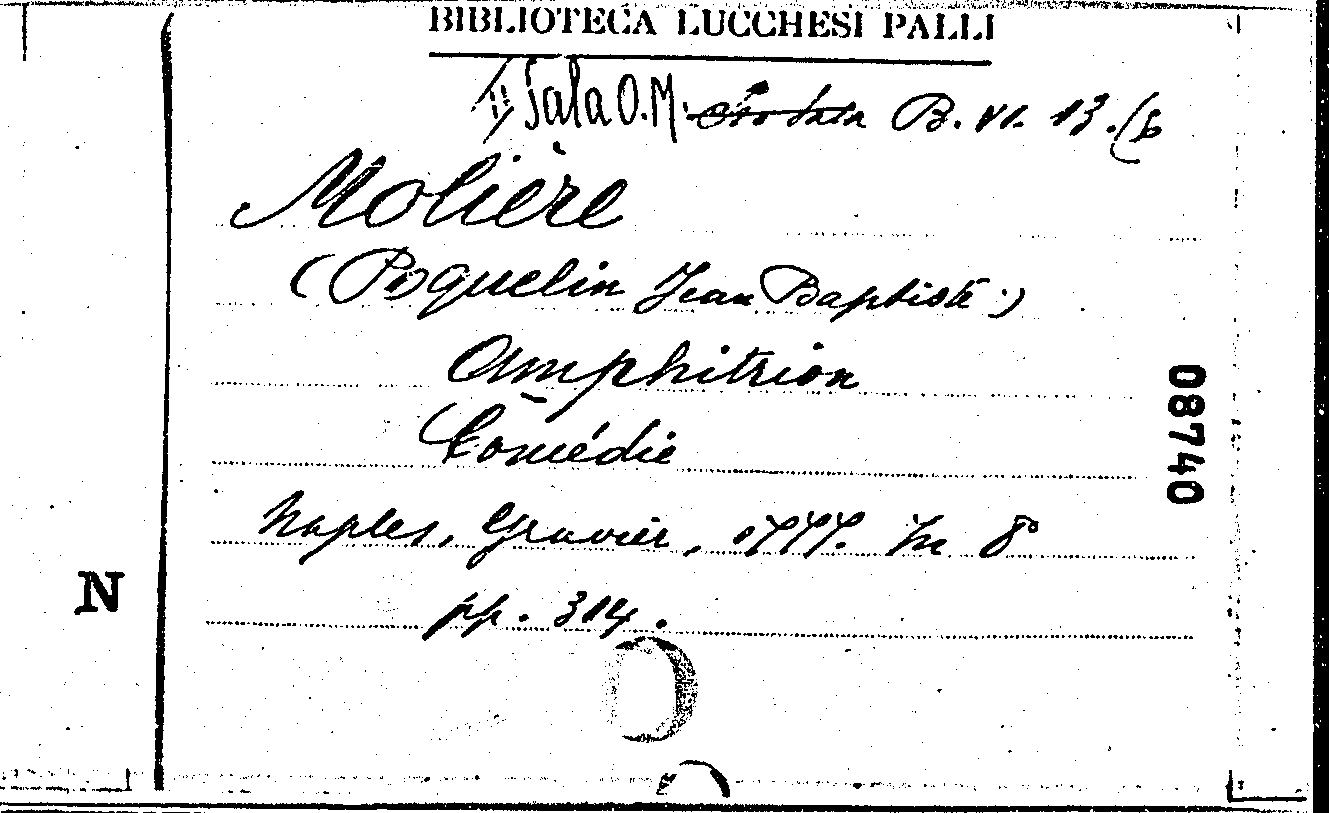 BIBLIOTECA LUCCHESI PALLI
Sala O.M. B. VI. 13.(6
Molière
(Poquelin Jean Baptiste)
Amphitrion
Comédie
Naples, Gravier, 1777. In 8°
pp. 314.
N
08740